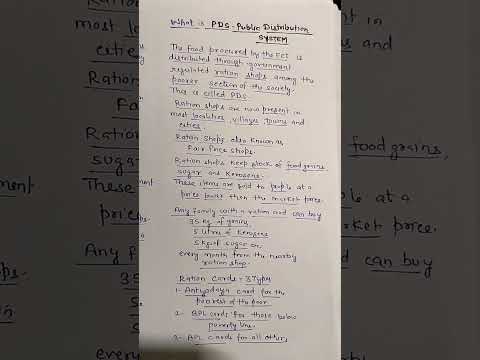 What is PDS - Public Distribution
SYSTEM
The food procured by the FCI is
distributed through government
regulated ration shops among the
poorer section of the society.
This is called PDS.
Ration shops are now present in
most localities, villages, towns and
cities.
Ration Shops also known as
Fair Price Shops.
Ration shops keep stock of food grains,
sugar and Kerosene.
These items are sold to people at a
price lower than the market price.
Any family with a ration card can buy
35 kg of grains,
5 litres of Kerosene
5 kg of sugar etc.
every month from the nearby
ration shop.
Ration Cards = 3 Types
1- Antyodaya card for the
poorest of the poor.
2- BPL cards for those below
poverty line.
3- APL cards for all others